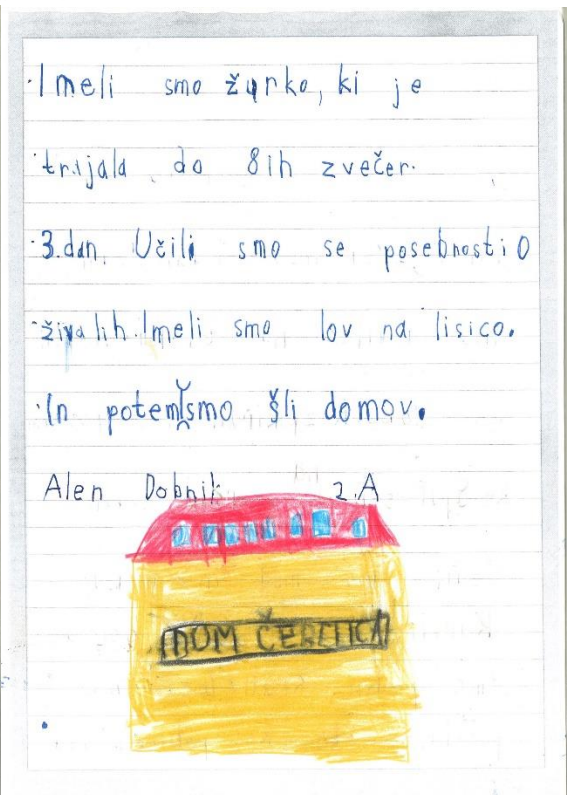 Imeli smo žurko, ki je
trijala do 8ih zvečer.
3.dan Učili smo se posebnosti O
živalih. Imeli smo lov na lisico.
In potem smo šli domov.
Alen Dobnik 2.A
DOM ČEBELICA